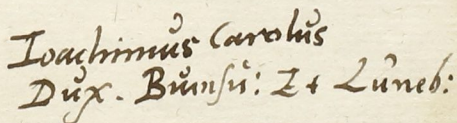 Ioachimus Carolus
Dux. Brunsu: Et Luneb: